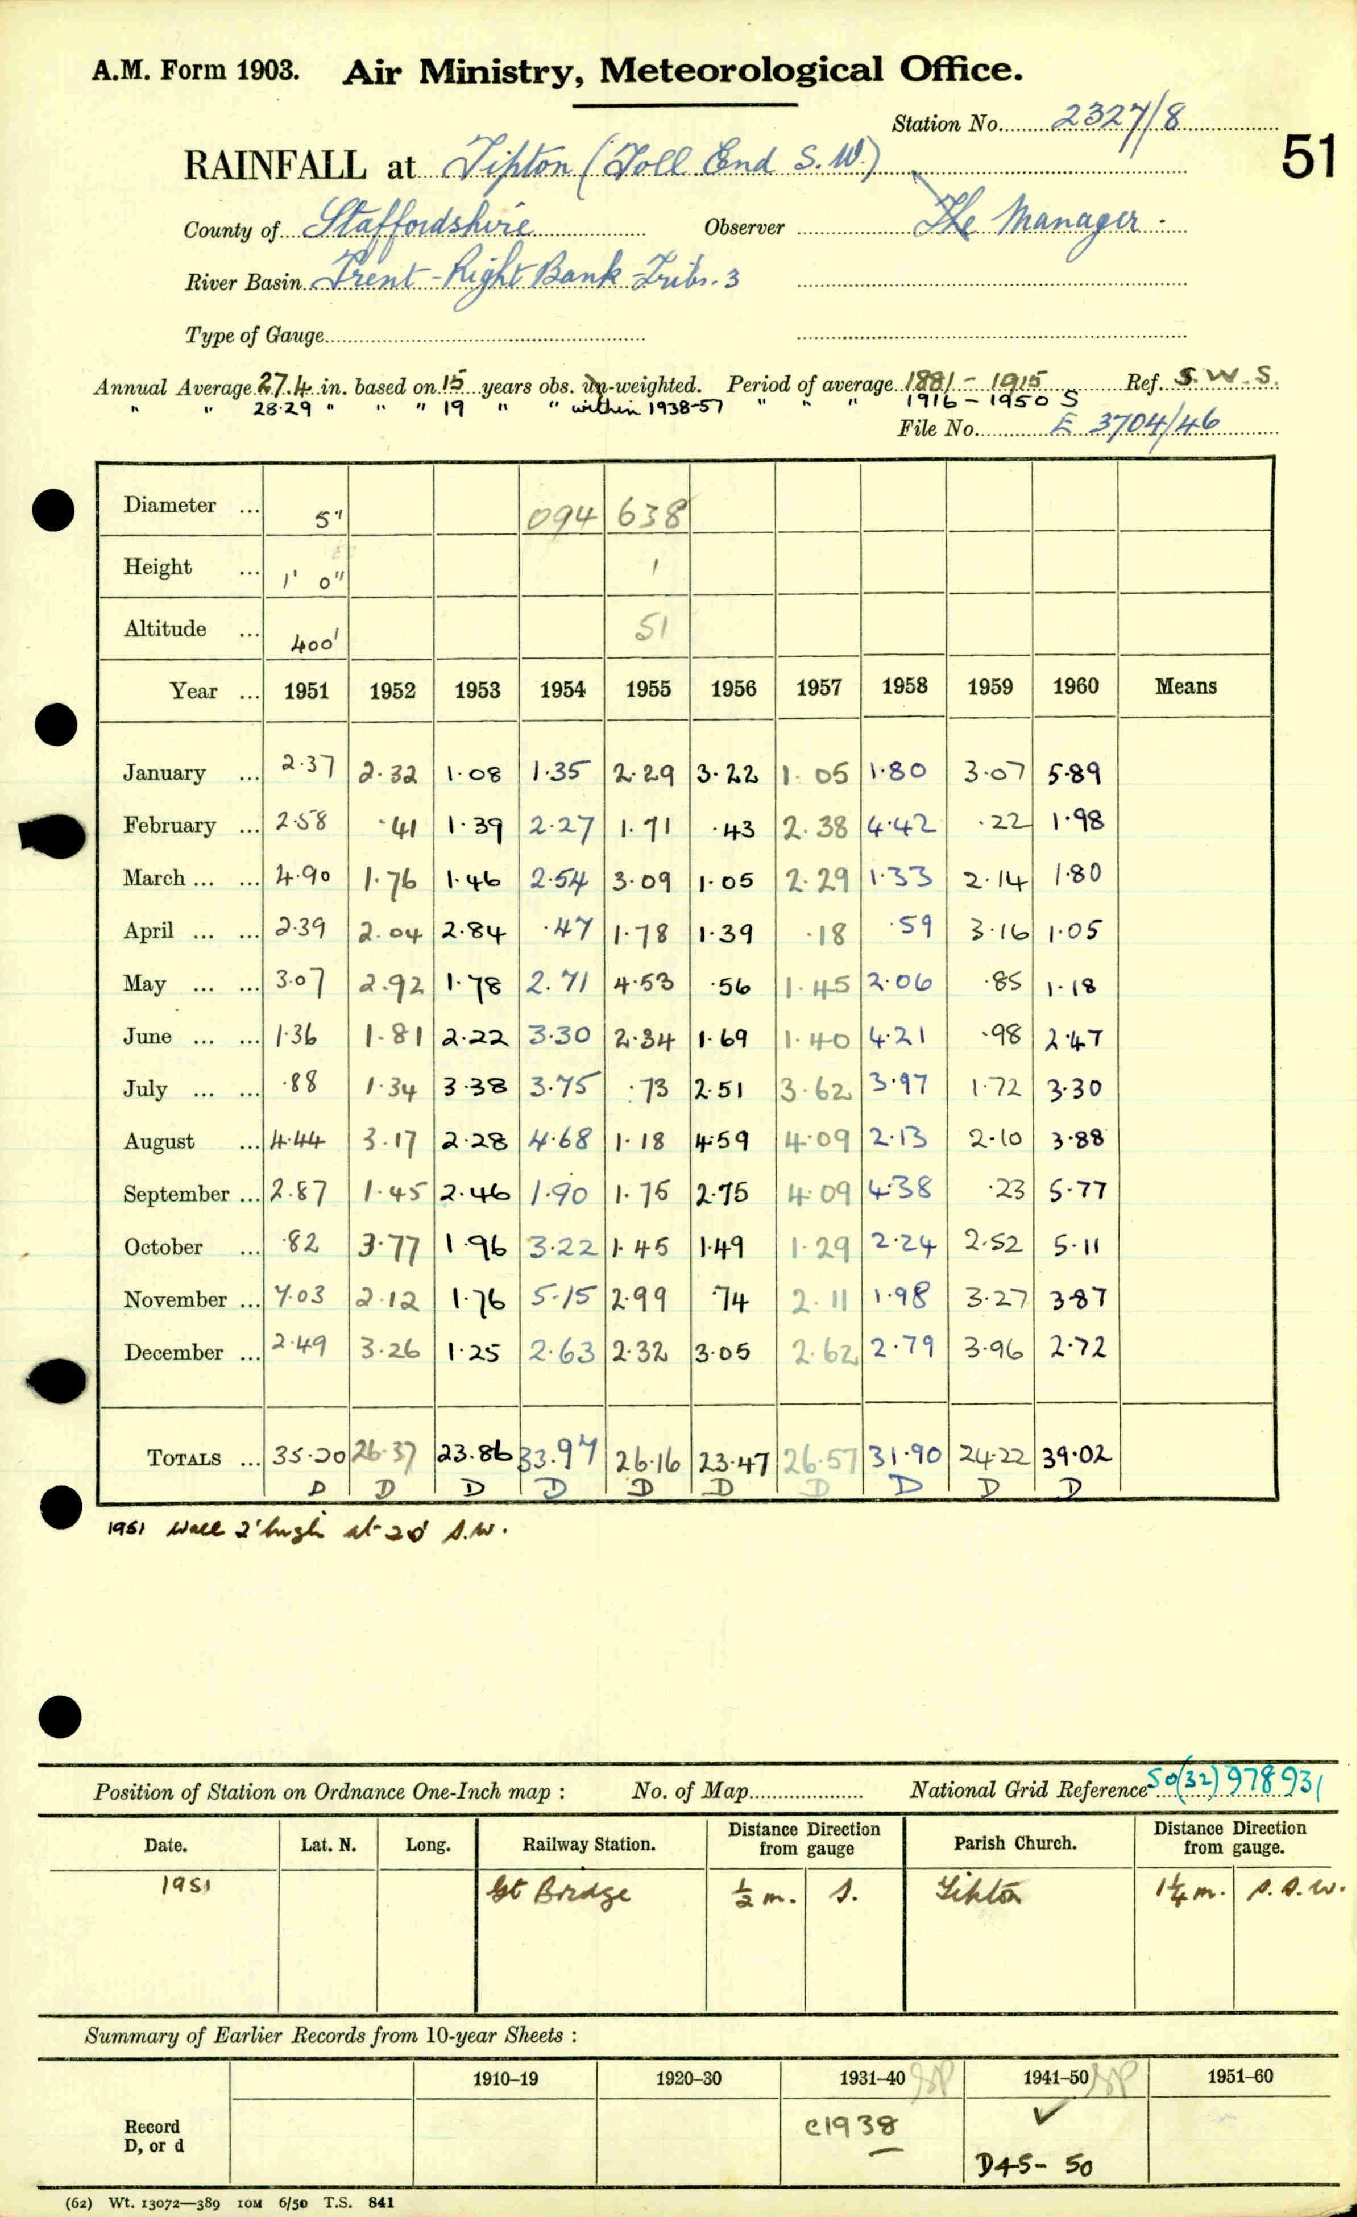 A.M. Form 1903. Air Ministry, Meteorological Office.
Station No. 2327/8
51
RAINFALL at Tipton (Toll End S.W.)
County of Staffordshire Observer The Manager
River Basin Trent - Right Bank Tribs. 3
Type of Gauge
Annual Average 27.4 in. based on 15 years obs. un-weighted. Period of average 1881 - 1915 Ref. S.W.S.
" " 28.29 " " " 19 " " within 1938-57 " " " 1916 - 1950 S
File No. E 3704/46
Diameter ... 5" 094 638
Height ... 1' 0" 1
Altitude ... 400' 51
Year ... 1951 1952 1953 1954 1955 1956 1957 1958 1959 1960 Means
January ... 2.37 2.32 1.08 1.35 2.29 3.22 1.05 1.80 3.07 5.89
February ... 2.58 .41 1.39 2.27 1.71 .43 2.38 4.42 .22 1.98
March ... ... 4.90 1.76 1.46 2.54 3.09 1.05 2.29 1.33 2.14 1.80
April ... ... 2.39 2.04 2.84 .47 1.78 1.39 .18 .59 3.16 1.05
May ... ... 3.07 2.92 1.78 2.71 4.53 .56 1.45 2.06 .85 1.18
June ... ... 1.36 1.81 2.22 3.30 2.34 1.69 1.40 4.21 .98 2.47
July ... ... .88 1.34 3.38 3.75 .73 2.51 3.62 3.97 1.72 3.30
August ... 4.44 3.17 2.28 4.68 1.18 4.59 4.09 2.13 2.10 3.88
September ... 2.87 1.45 2.46 1.90 1.75 2.75 4.09 4.38 .23 5.77
October ... .82 3.77 1.96 3.22 1.45 1.49 1.29 2.24 2.52 5.11
November ... 7.03 2.12 1.76 5.15 2.99 .74 2.11 1.98 3.27 3.87
December ... 2.49 3.26 1.25 2.63 2.32 3.05 2.62 2.79 3.96 2.72
TOTALS ... 35.20 26.37 23.86 33.97 26.16 23.47 26.57 31.90 24.22 39.02
D D D D D D D D D D
1951 Wall 2' high at 20' S.W.
Position of Station on Ordnance One-Inch map : No. of Map National Grid Reference SO(32)978931
Date. Lat. N. Long. Railway Station. Distance from Direction gauge Parish Church. Distance from Direction gauge.
1951 Gt Bridge ½ m. S. Tipton 1¼ m. S.S.W.
Summary of Earlier Records from 10-year Sheets :
1910–19 1920–30 1931–40 1941–50 1951–60
Record
D, or d
c1938 ✓
D45 - 50
(62) Wt. 13072—389 10M 6/50 T.S. 841